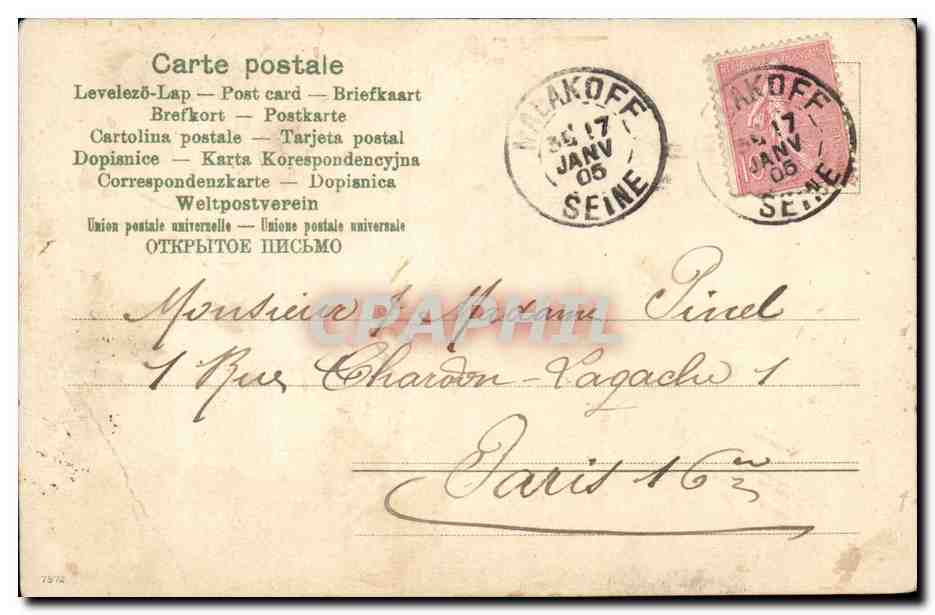 Carte postale
Levelezö-Lap — Post card — Briefkaart
Brefkort — Postkarte
Cartolina postale — Tarjeta postal
Dopisnice — Karta Korespondencyjna
Correspondenzkarte — Dopisnica
Weltpostverein
Union postale universelle — Unione postale universale
ОТКРЫТОЕ ПИСЬМО
MALAKOFF
17
JANV
05
SEINE
LAKOFF
17
JANV
05
SEINE
Monsieur & Madame Pinel
1 Rue Chardon-Lagache 1
Paris 16e
CPAPHIL
7972